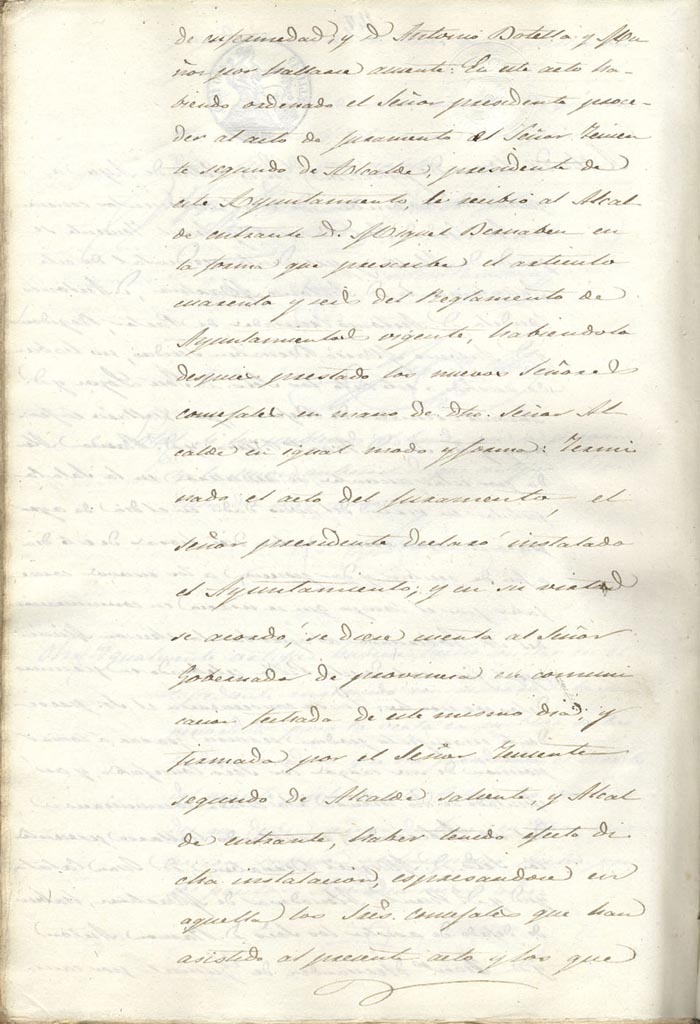 de enfermedad, y D. Antonio Botella y Mu
ñoz por hallarse ausente: En este acto ha-
biendo ordenado el Señor presidente proce-
der al acto de juramento el Señor Tenien
te segundo de Alcalde, presidente de
este Ayuntamiento, le recibió al Alcal
de entrante D. Miguel Bernabeu en
la forma que prescribe el articulo
cuarenta y seis del Reglamento de
Ayuntamientos vigente, habiendolo
despues prestado los nuevos Señores
concejales en mano de dho. Señor Al
calde en igual modo y forma: Termi
nado el acto del juramento, el
señor presidente declaró instalado
el Ayuntamiento; y en su virtud
se acordó, se diese cuenta al Señor
Gobernador de provincia en comuni
cacion fechada de este mismo dia, y
firmada por el Señor Teniente
segundo de Alcalde saliente, y Alcal
de entrante, haber tenido efecto di
cha instalacion, espresandose en
aquella los Sres. concejales que han
asistido al presente acto y los que